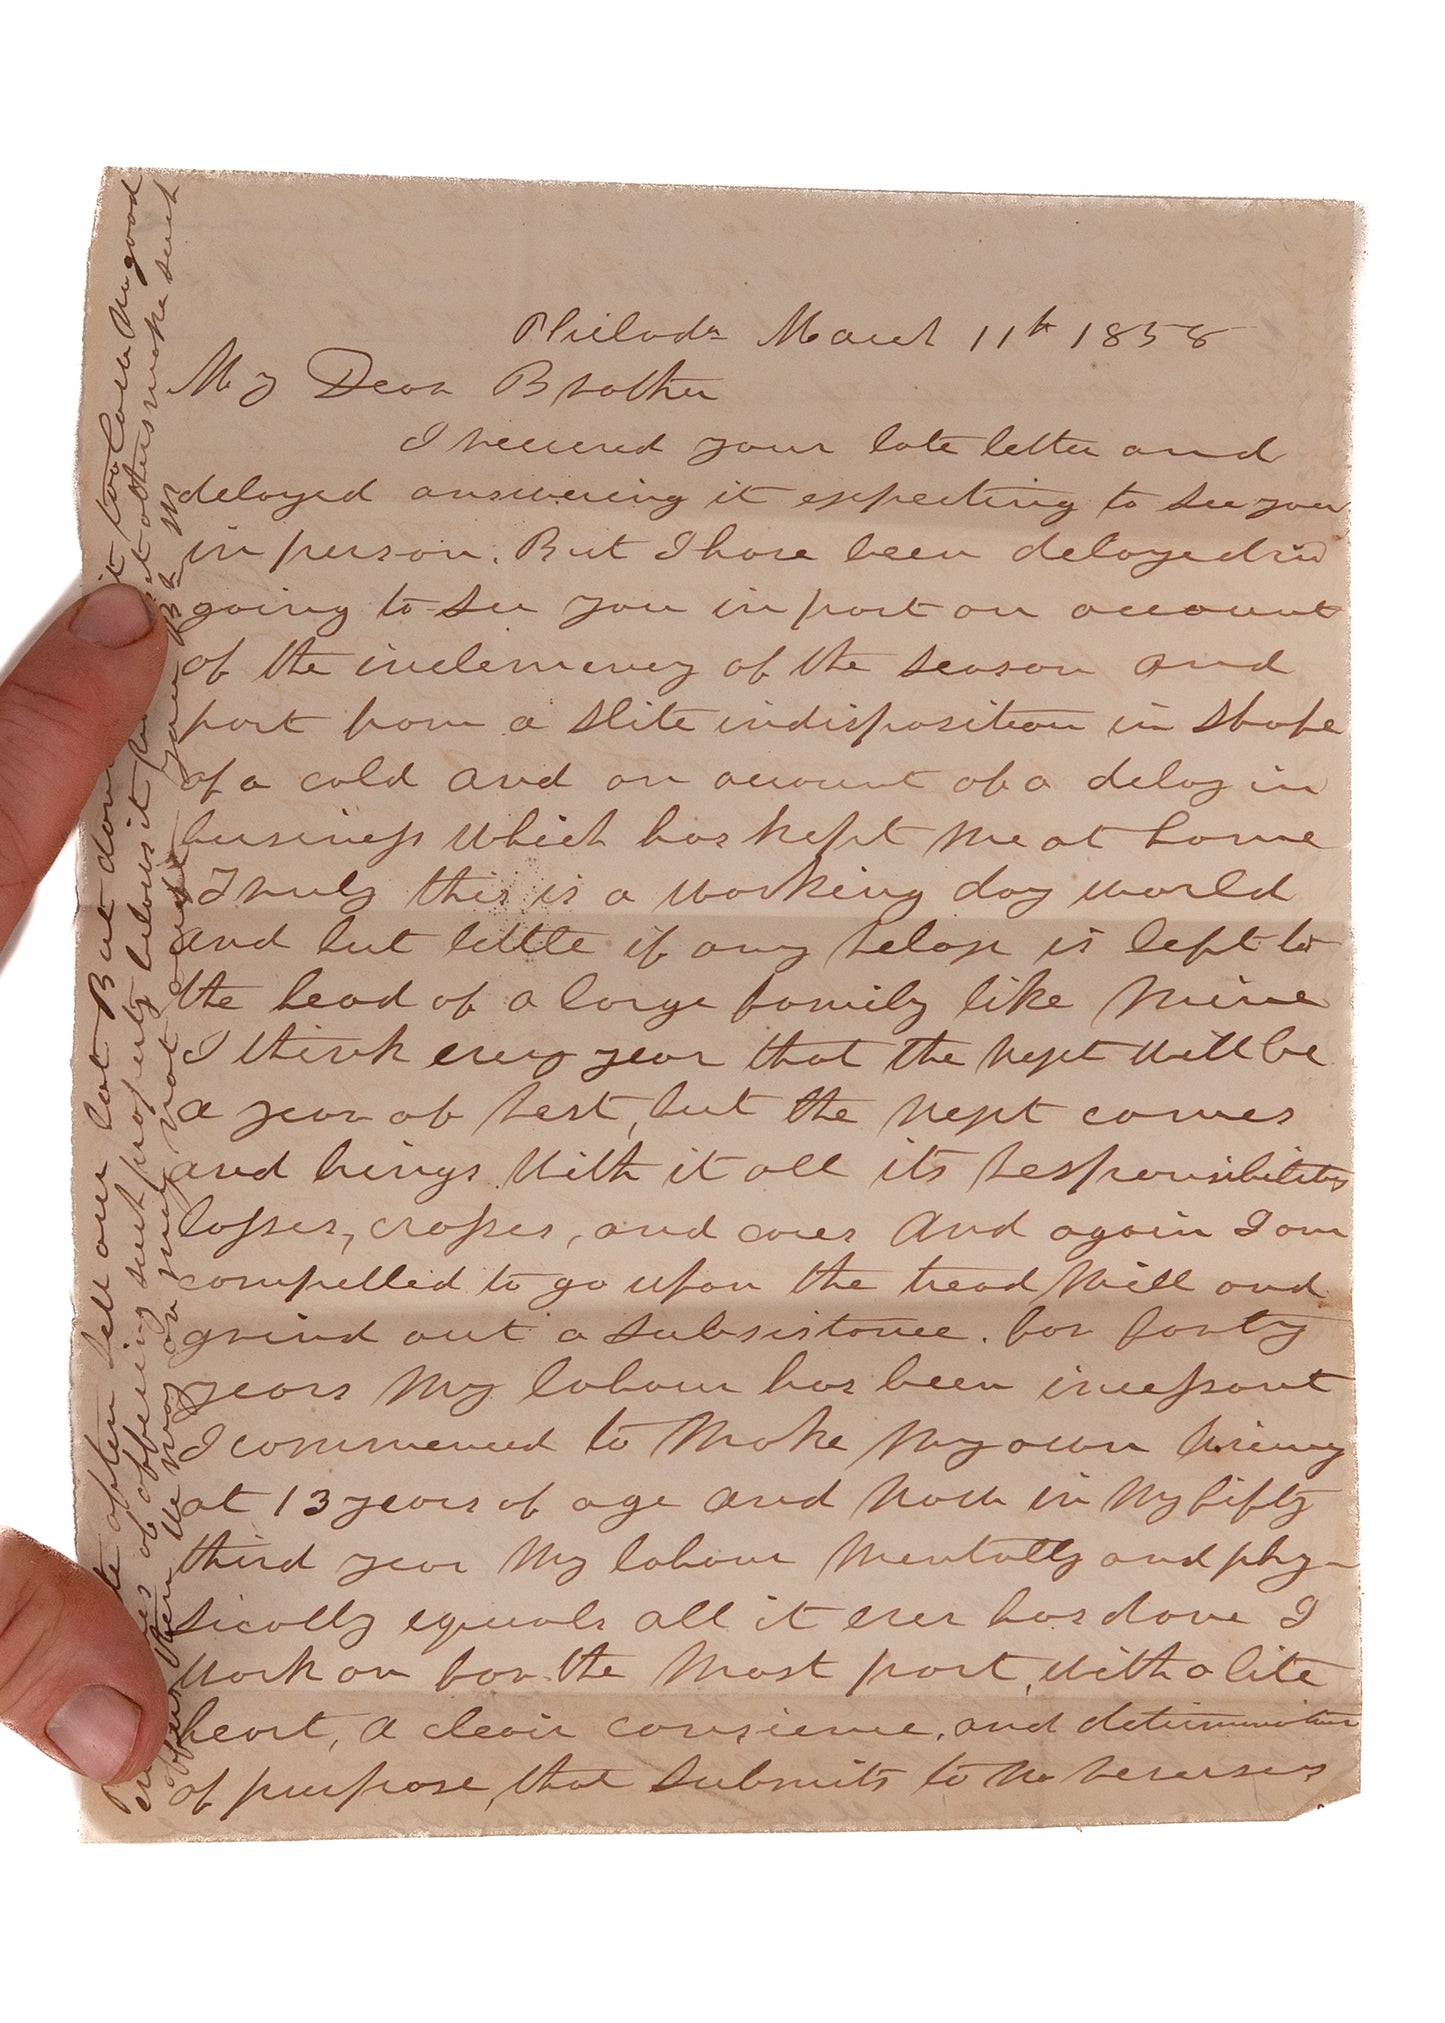 Philada March 11th 1858
My Dear Brother
I received your late letter and
delayed answering it expecting to see you
in person. But I have been delayed in
going to see you in part on account
of the inclemency of the season and
part from a slite indisposition in shape
of a cold and on account of a delay in
business which has kept me at home
Truly this is a working day world
and but little if any relax is left to
the head of a large family like mine
I think every year that the next will be
a year of rest, but the next comes
and brings with it all its responsibilitys
losses, crosses, and cares And again I am
compelled to go upon the tread mill and
grind out a subsistance. for forty
years My labour has been incessant
I commenced to make my own living
at 13 years of age and now in my fifty
third year my labour mentally and phy-
sically equals all it ever has done I
work on for the most part, with a lite
heart, a clear consience, and determination
of purpose, that submits to no reverses
often sell our lot But do too low No good
of offering such property below it others make such
offer then We way or may not accept Your